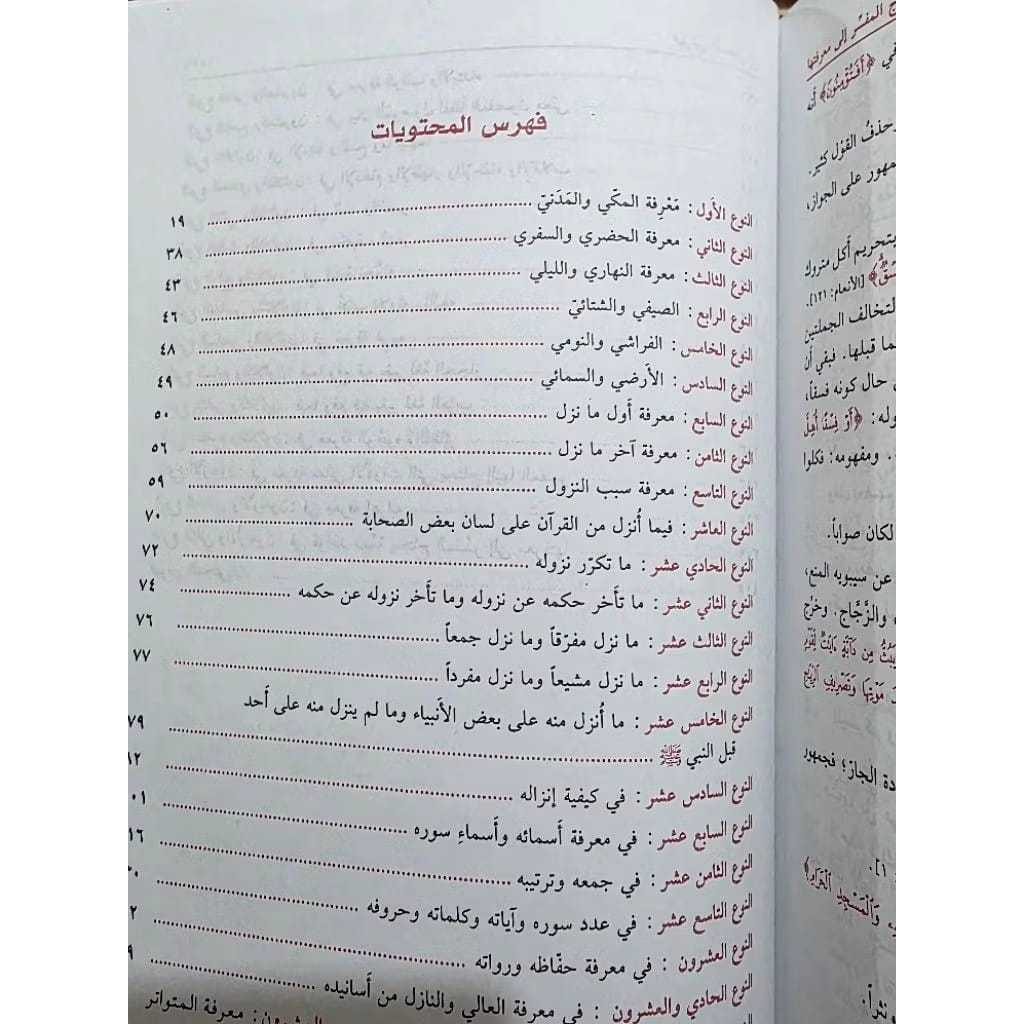 ج المفسّر إلى معرفتها
في ﴿أَفَتُؤْمِنُونَ﴾ أنه
وحذفُ القوْل كثير.
مهور على الجواز،
بتحريم أكل متروك
[الأنعام: ١٢١].
لتخالف الجملتين
ما قبلها. فبقي أن
حال كونه فسقاً،
وله: ﴿أَوْ فِسْقًا أُهِلَّ
. ومفهومه: فكلوا
لكان صواباً.
عن سيبويه المنع،
والزَّجَّاج. وخرّج
مِن دَآبَّةٍ ءَايَٰتٌ لِّقَوْمٍ
مَوْتِهَا وَتَصْرِيفِ ٱلرِّيَٰحِ
دة الجارّ؛ فجمهور
١].
وَٱلْمَسْجِدِ ٱلْحَرَامِ﴾
ونثراً.
فهرس المحتويات
النوع الأَول: مَعْرِفة المكّي والمَدَنيّ ١٩
النوع الثاني: معرفة الحضري والسفري ٣٨
النوع الثالث: معرفة النهاري والليلي ٤٣
النوع الرابع: الصيفي والشتائيّ ٤٦
النوع الخامس: الفراشي والنومي ٤٨
النوع السادس: الأَرضي والسمائي ٤٩
النوع السابع: معرفة أَول ما نزل ٥٠
النوع الثامن: معرفة آخر ما نزل ٥٦
النوع التاسع: معرفة سبب النزول ٥٩
النوع العاشر: فيما أُنزل من القرآن على لسان بعض الصحابة ٧٠
النوع الحادي عشر: ما تكرّر نزوله ٧٢
النوع الثاني عشر: ما تأَخر حكمه عن نزوله وما تأَخر نزوله عن حكمه ٧٤
النوع الثالث عشر: ما نزل مفرّقاً وما نزل جمعاً ٧٦
النوع الرابع عشر: ما نزل مشيعاً وما نزل مفرداً ٧٧
النوع الخامس عشر: ما أُنزل منه على بعض الأَنبياء وما لم ينزل منه على أَحد
قبل النبي ﷺ ٧٩
النوع السادس عشر: في كيفية إنزاله
النوع السابع عشر: في معرفة أَسمائه وأَسماءِ سوره
النوع الثامن عشر: في جمعه وترتيبه
النوع التاسع عشر: في عدد سوره وآياته وكلماته وحروفه
النوع العشرون: في معرفة حفّاظه ورواته
النوع الحادي والعشرون: في معرفة العالي والنازل من أَسانيده
والعشرون: معرفة المتواتر